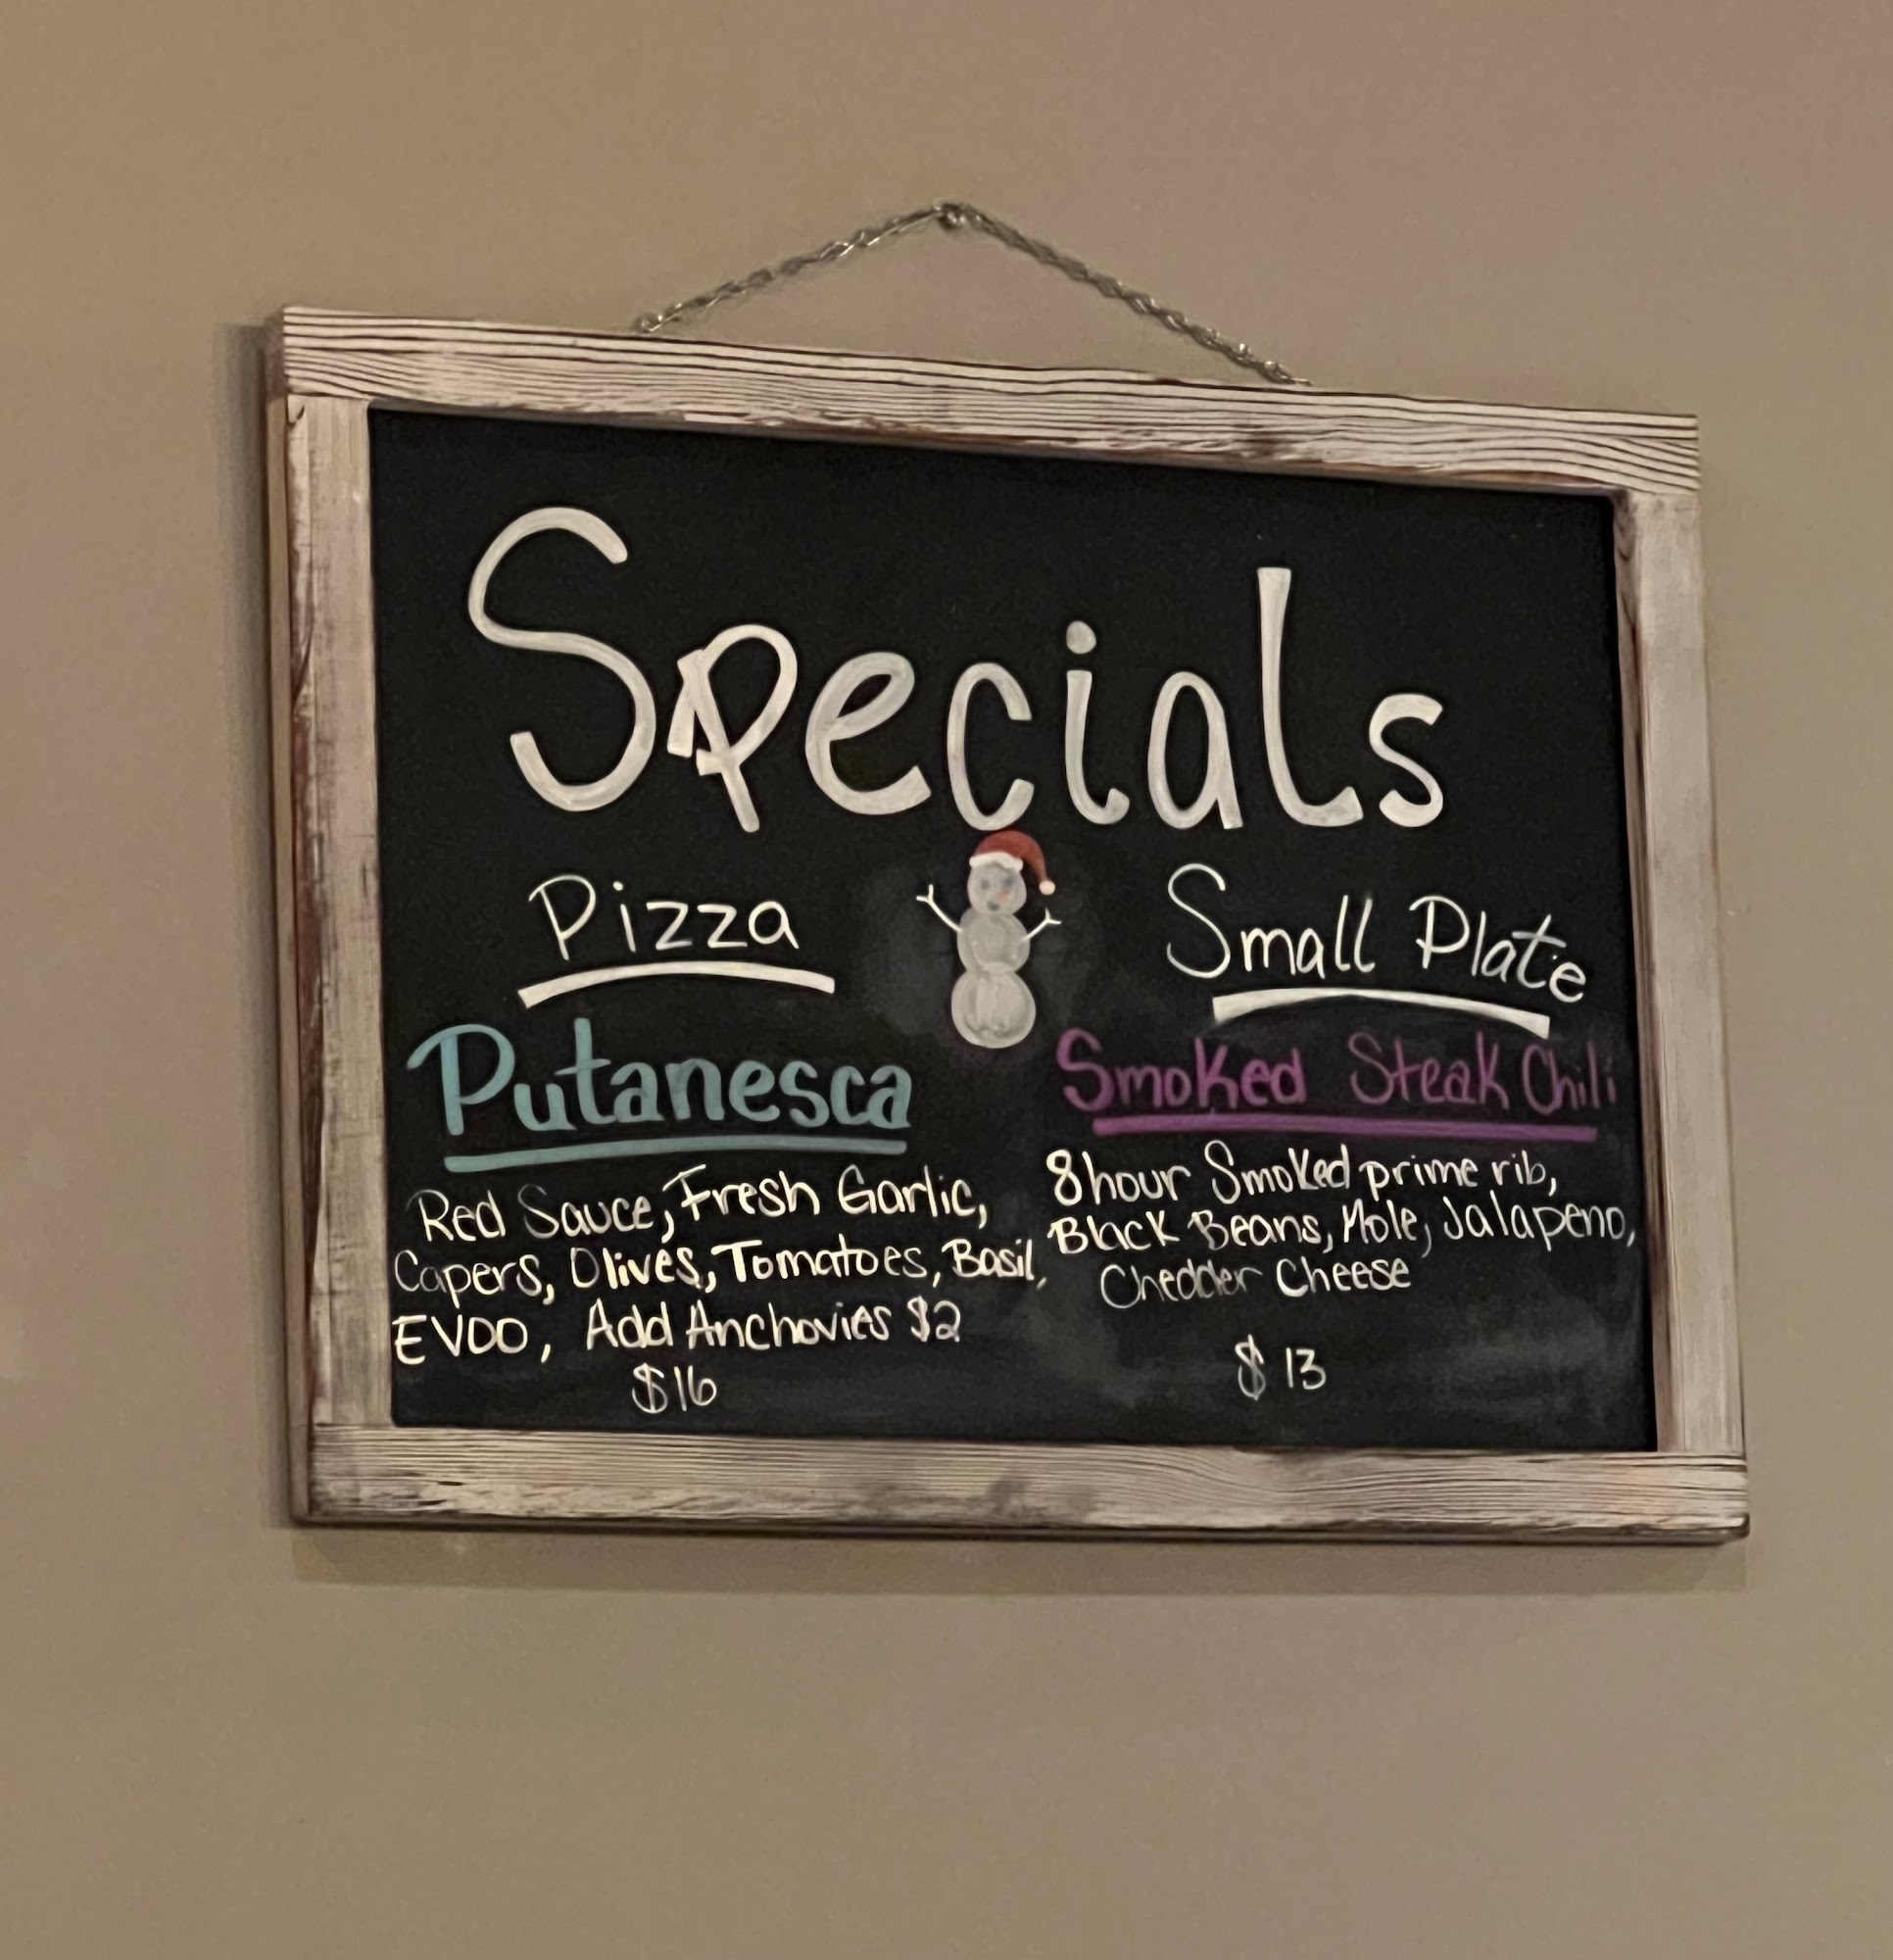 Specials
Pizza
Putanesca
Red Sauce, Fresh Garlic,
Capers, Olives, Tomatoes, Basil,
EVOO, Add Anchovies $2
$16
Small Plate
Smoked Steak Chili
8 hour Smoked prime rib,
Black Beans, Mole, Jalapeno,
Chedder Cheese
$13